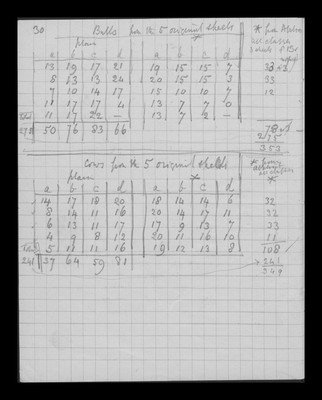 30 Bulls for the 5 original sheets
plain *
a b c d a b c d
13 19 17 21 19 15 15 7
8 13 13 24 20 15 15 3 33
7 10 14 17 15 10 10 7 12
11 17 17 4 13 7 7 0
11 17 22 — 13 7 2 —
275 50 76 83 66 275
353
Cows for the 5 original sheets
plain *
a b c d a b c d
14 17 18 20 18 14 14 6 32
8 14 11 16 20 14 17 11 32
6 13 11 17 17 9 13 7 23
4 9 8 12 20 11 16 10 11
5 11 11 16 19 12 13 8 108
241 37 64 59 81 241
349